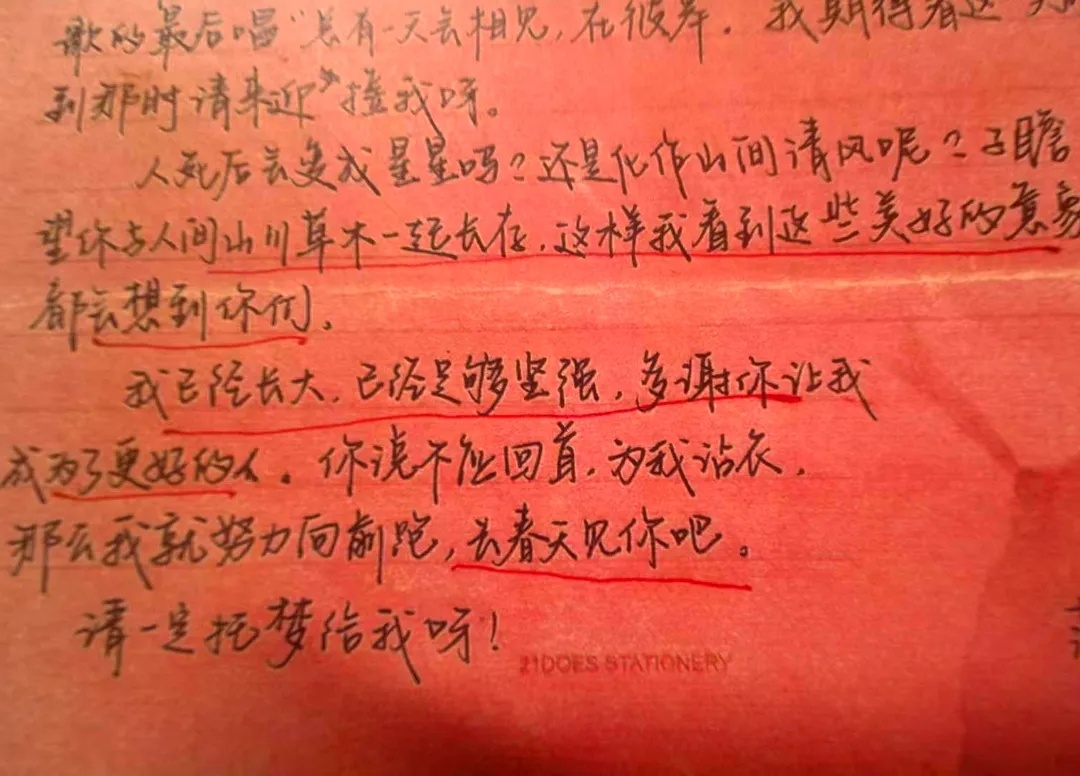 歌的最后唱“总有一天会相见,在彼岸。我期待着这
到那时请来迎接我呀。
人死后会变成星星吗?还是化作山间清风呢?子瞻
望你与人间山川草木一起长存,这样我看到这些美好的意象
都会想到你们。
我已经长大,已经足够坚强,多谢你让我
成为了更好的人。你说不应回首,为我沾衣,
那么我就努力向前跑,去春天见你吧。
请一定托梦给我呀!
21DOES STATIONERY